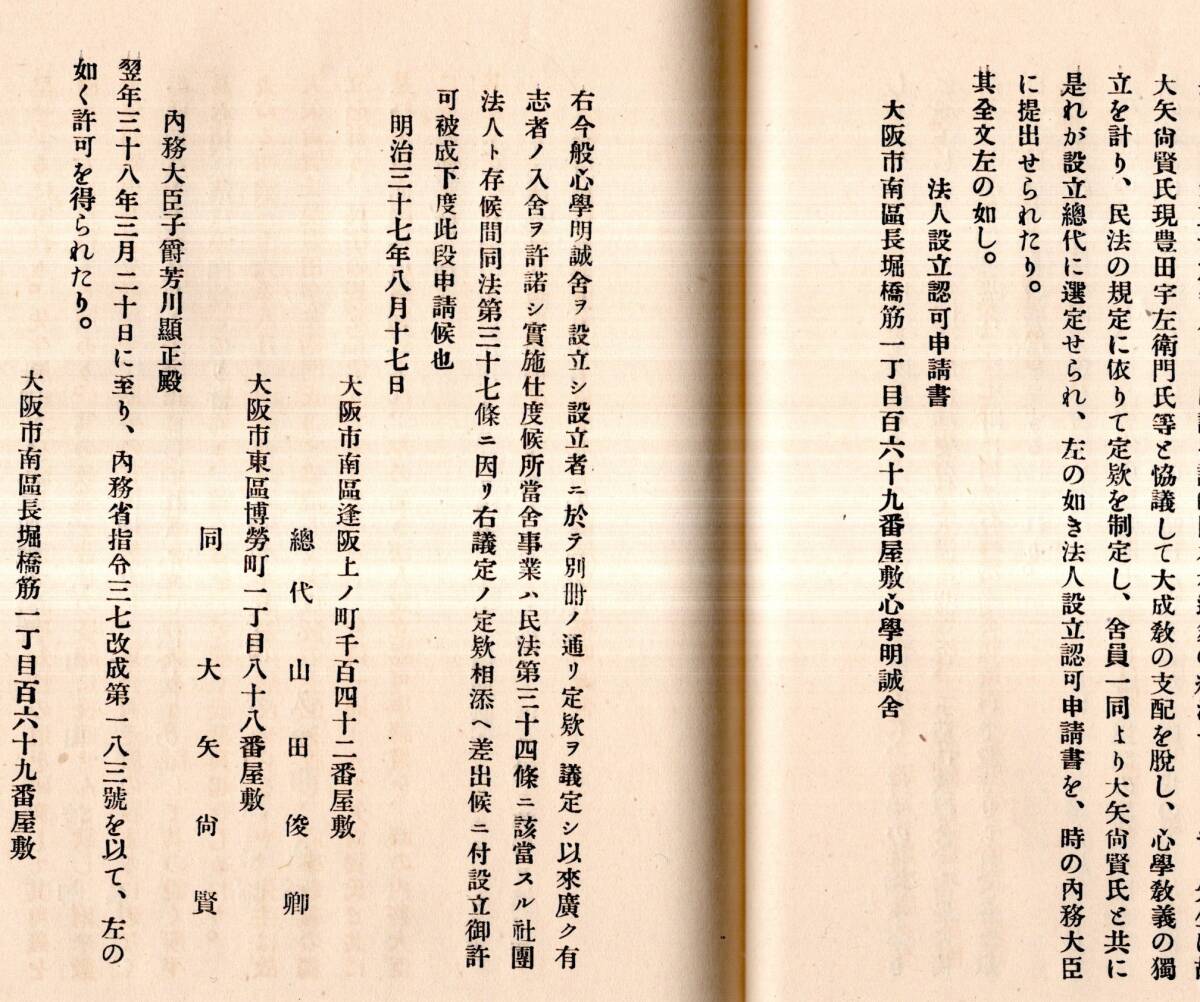 大矢尙賢氏現豊田宇左衞門氏等と協議して大成敎の支配を脫し、心學敎義の獨
立を計り、民法の規定に依りて定欵を制定し、舍員一同より大矢尙賢氏と共に
是れが設立總代に選定せられ、左の如き法人設立認可申請書を、時の內務大臣
に提出せられたり。
其全文左の如し。
法人設立認可申請書
大阪市南區長堀橋筋一丁目百六十九番屋敷心學明誠舍
右今般心學明誠舍ヲ設立シ設立者ニ於テ別册ノ通リ定欵ヲ議定シ以來廣ク有
志者ノ入舍ヲ許諾シ實施仕度候所當舍事業ハ民法第三十四條ニ該當スル社團
法人ト存候間同法第三十七條ニ因リ右議定ノ定欵相添ヘ差出候ニ付設立御許
可被成下度此段申請候也
明治三十七年八月十七日
大阪市南區逢阪上ノ町千百四十二番屋敷
總代 山田俊卿
大阪市東區博勞町一丁目八十八番屋敷
同 大矢尙賢
內務大臣子爵芳川顯正殿
翌年三十八年三月二十日に至り、內務省指令三七改成第一八三號を以て、左の
如く許可を得られたり。
大阪市南區長堀橋筋一丁目百六十九番屋敷